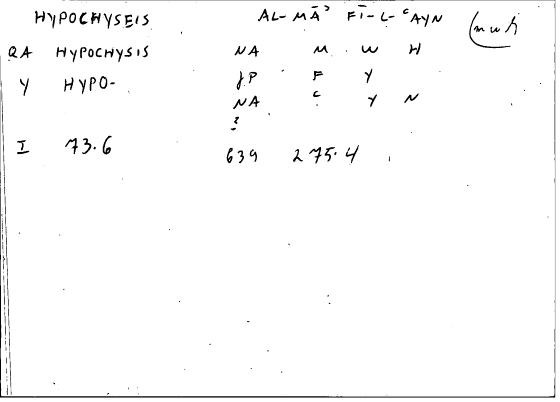 HYPOCHYSEIS AL-MĀʾ FĪ-L-ʿAYN (mwh)
QA HYPOCHYSIS NA M W H
Y HYPO- JP F Y
NA ʿ Y N
?
I 73.6 639 275.4